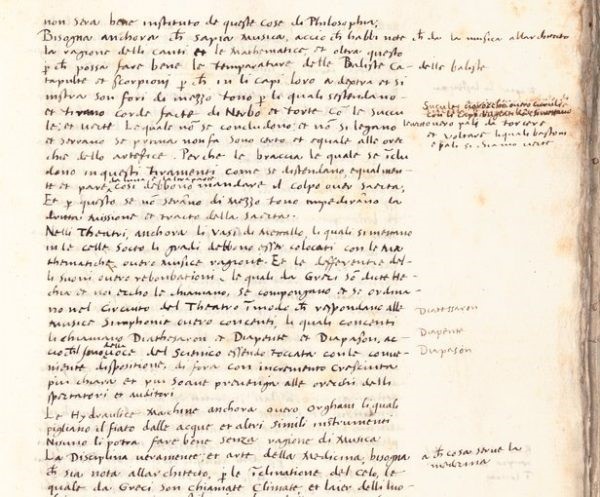 non sera bene instituto de queste cose di Philosophia;
Bisogna anchora ch sapia Musica, acciò ch habbi note
la ragione delli canti et le Mathematice, et oltra questo
p ch possa fare bene le Temperature delle Baliste Ca-
tapulte et Scorpionj p ch in li capi loro a dextra et si
nistra son fori di mezzo tono p li quali se stendano
et tirano corde facte di Nerbo et torte cō le succu
le; et vecte le quale nō se concludono; et nō si legano
et serrano se prima non fa sono certo et equale alle ore
chie dello artefice. Perche le braccia le quale se iclu
dono in questi tiramenti come se distendano, equalmen
te et pare, cosi debbono mandare il colpo over saetta;
Et p questo se nō serāno di mezzo tono impedirāno la
missione et tracto della saetta.
Nelli Theatri, anchora li vasi de Metallo, li quali si metano
in le celle socto li gradi debbono esser colocati con le Ma
thematiche overo Musice ragione. Et le defferentie del
li suoni overo rebombationi, le quali da Greci sō dicte He
chia et noi echo le chiamano, se compongano et se ordina
no nel Circuito del Theatro īmodo ch respondano alle
Musice Simphonie overo concenti, li quali concenti
li chiamano Diathesaron et Diapente et Diapason, ac
ciò ch della voce del Scenico essendo toccata con le conve
niente dispositione, di fora con incremento cresciuta
più chiara et più soave pervenga alle orechi delli
spectatori et auditori
Le Hydraulice Machine anchora overo Orghani li quali
pigliano il fiato dalle acque et altri simili instrumenti
Nisuno li potra fare bene senza ragione di Musica
La Disciplina veramente et arte della Medicina, bisogna
ch sia nota allarchitecto, p le īclinatione del Celo, le
quale da Greci son chiamate Climate, et laier delli luo-
ch da la musica allarchitecto
delle baliste
overo pali da torcere
et voltare li quali bastoni
e pali si chiama vecte
Diatessaron
Diapente
Diapason
a ch cosa serve la
medicina